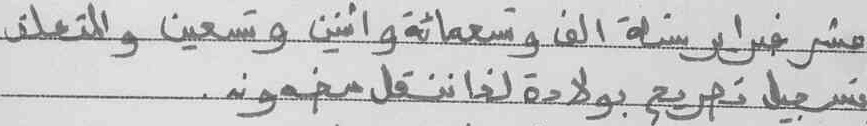 عشر فبراير سنة الف وتسعمائة واثنين وتسعين والمتعلق
بتسجيل تصريح بولادة لغا ننقل مضمونه .